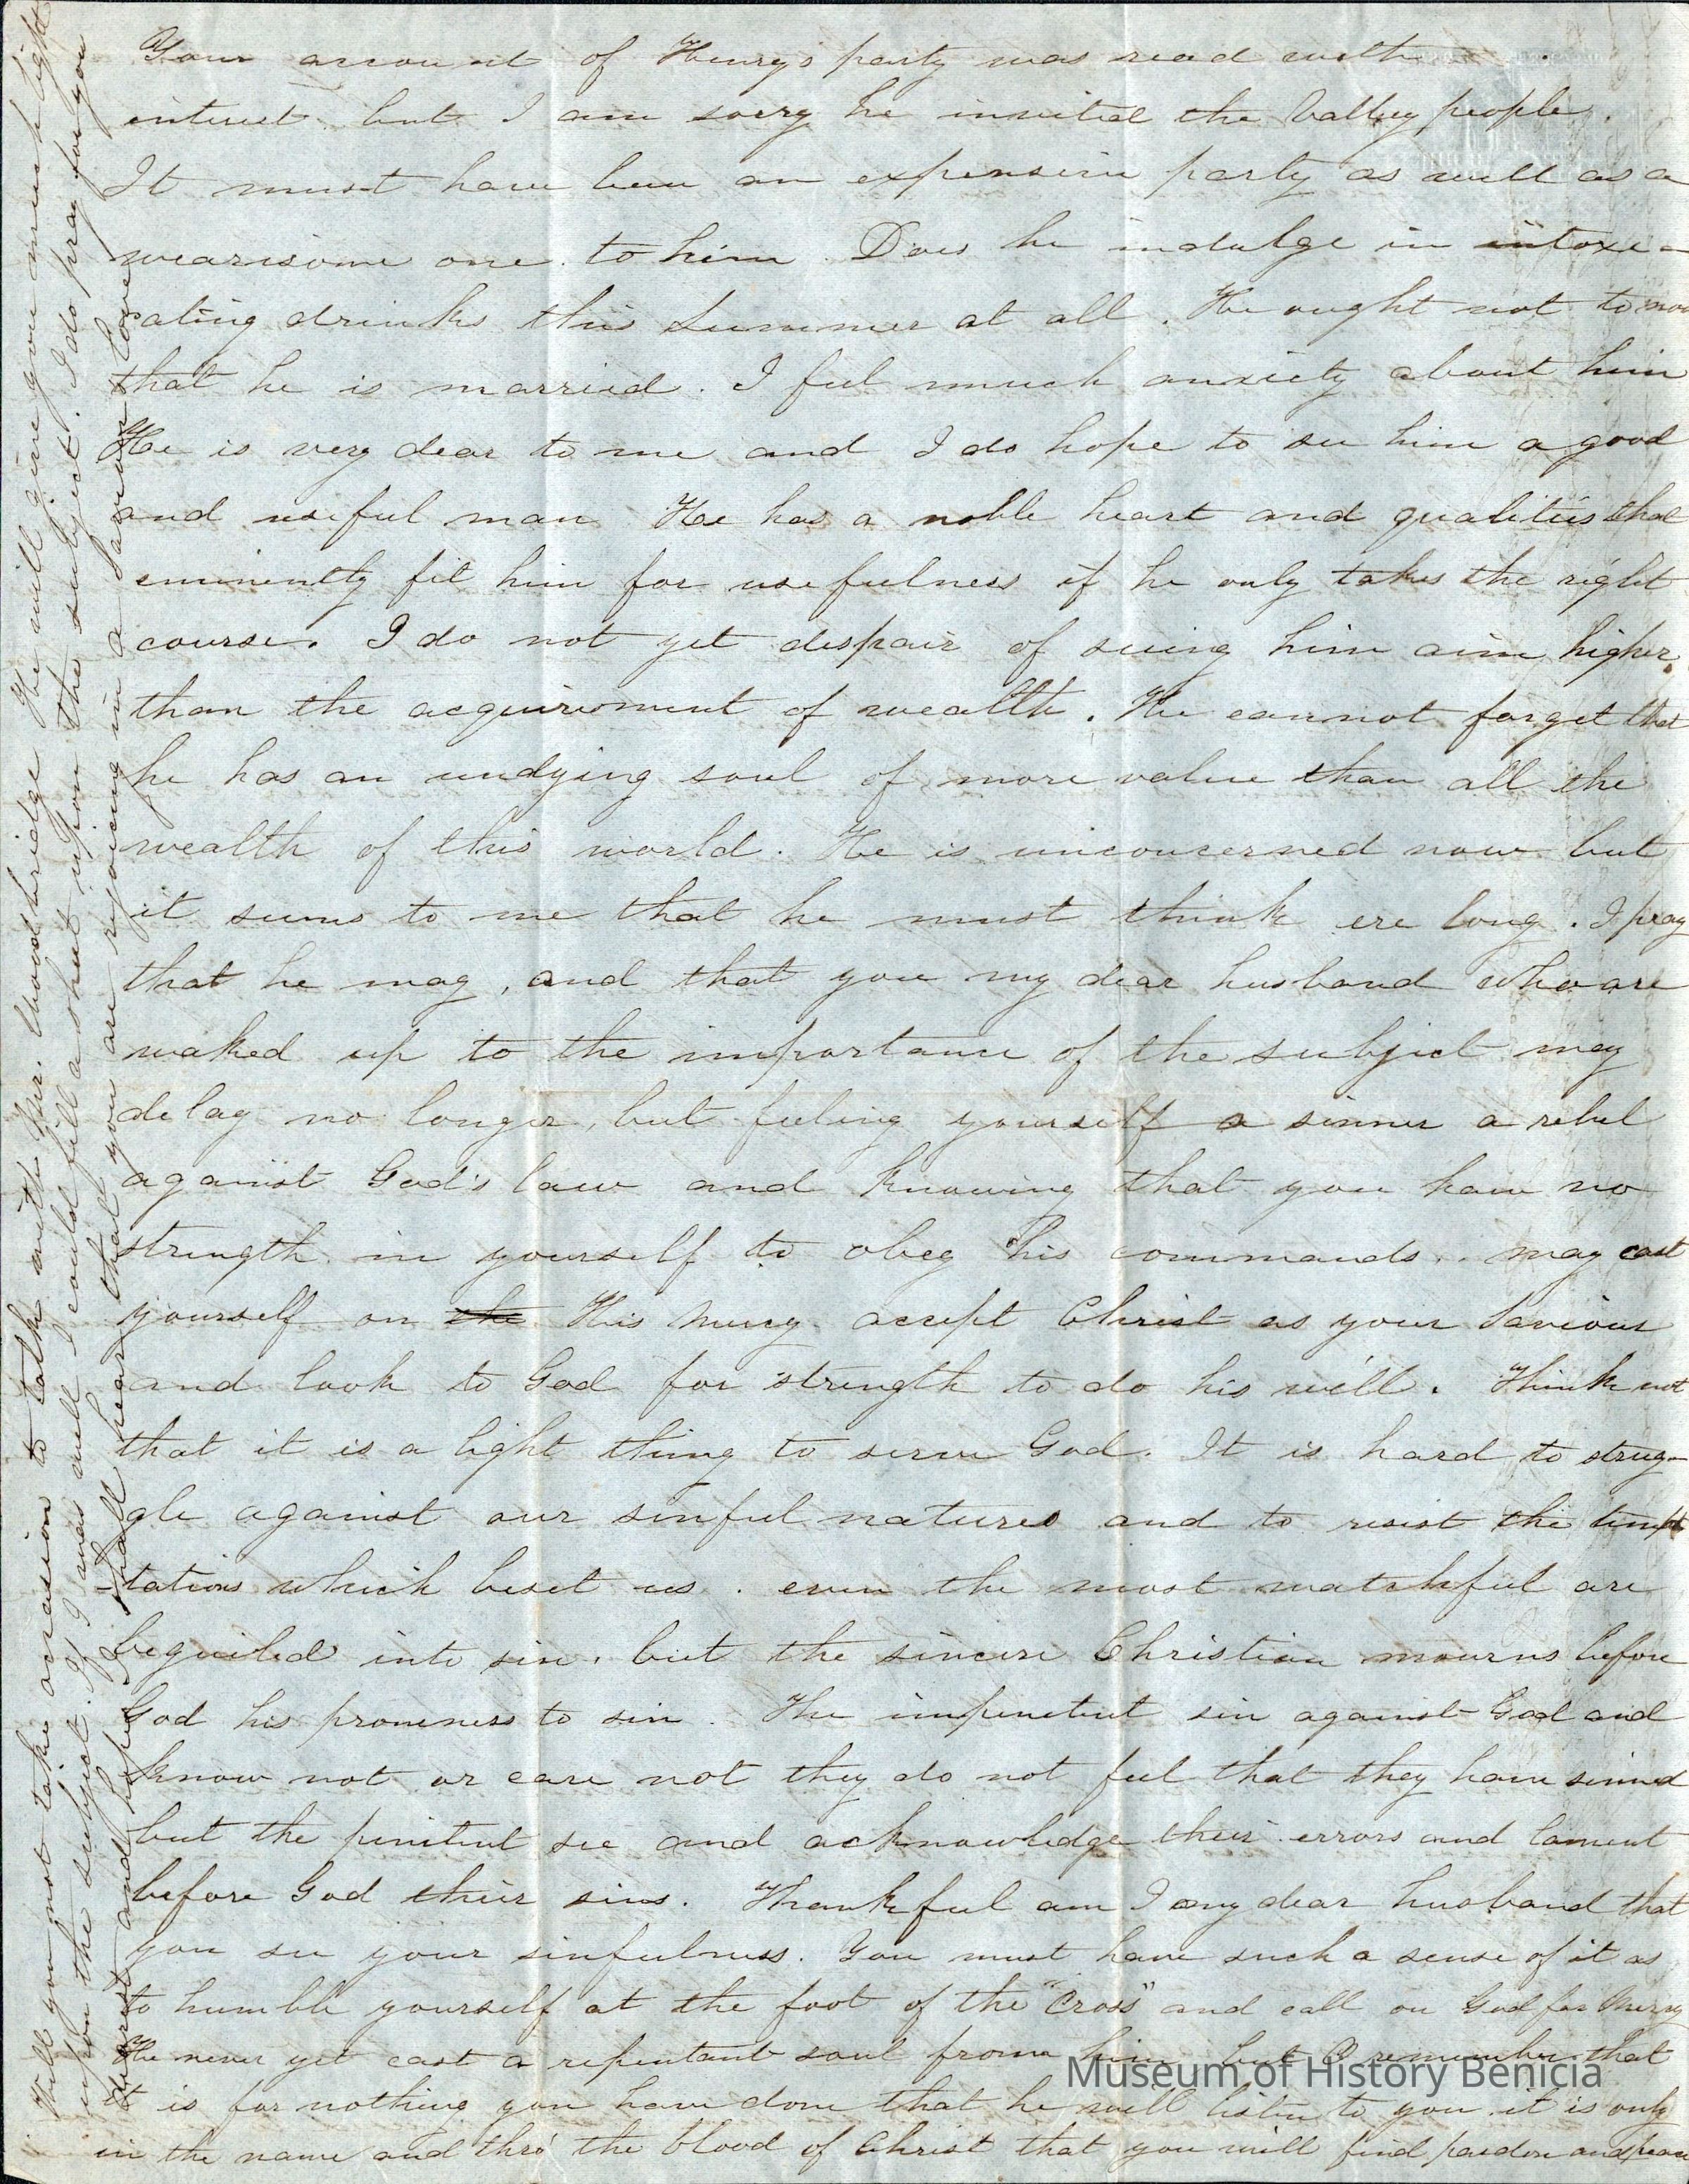 Your account of Henry's party was read with
interest but I am sorry he invited the Valley people.
It must have been an expensive party as well as a
wearisome one to him. Does he indulge in intoxi-
cating drinks this Summer at all. He ought not to now
that he is married. I feel much anxiety about him
He is very dear to me and I do hope to see him a good
and useful man He has a noble heart and qualities that
eminently fit him for usefulness if he only takes the right
course. I do not yet despair of seeing him aim higher
than the acquirement of wealth. He cannot forget that
he has an undying soul of more value than all the
wealth of this world. He is unconcerned now but
it seems to me that he must think ere long. I pray
that he may, and that you my dear husband who are
waked up to the importance of the subject may
delay no longer, but feeling yourself a sinner a rebel
against God's law and knowing that you have no
strength in yourself to obey his commands.. may cast
yourself on the His mercy accept Christ as your Saviour
and look to God for strength to do his will. Think not
that it is a light thing to serve God. It is hard to strug-
gle against our sinful natures and to resist the temp
-tations which beset us. even the most watchful are
beguiled into sin. but the sincere Christian mourns before
God his proneness to sin. The impenitent sin against God and
know not or care not they do not feel that they have sinned
but the penitent see and acknowledge their errors and lament
before God their sins. Thankful am I my dear husband that
you see your sinfulness. You must have such a sense of it as
to humble yourself at the foot of the "Cross" and call on God for Mercy
He never yet cast a repentant soul from him but O remember that
it is for nothing you have done that he will listen to you it is only
in the name and thro' the blood of Christ that you will find pardon and peace
Will you not take occasion to talk with Mr. Woodbridge He will give you much light
upon the subject. If I was well I could fill a sheet upon the subject. I do pray for you
dearest and hope I shall hear that you are rejoicing in a Saviour's love
Museum of History Benicia